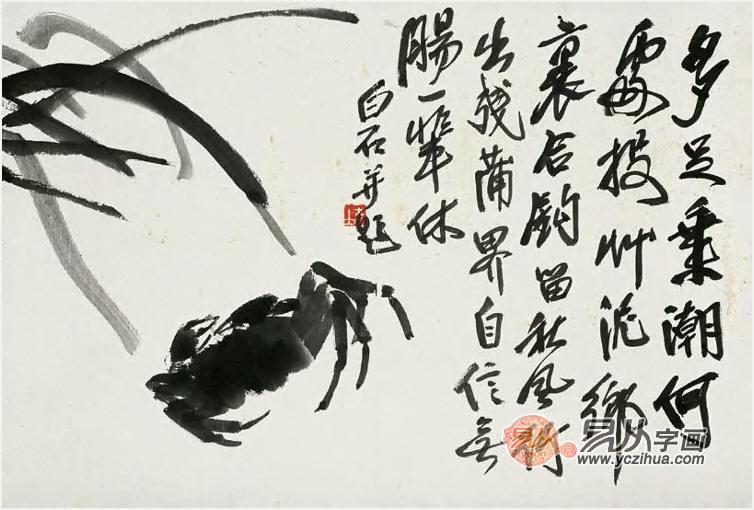 多足乘潮何
處投艸泥鄉
裏合鈎留秋風行
出殘蒲界自信無
腸一輩休
白石并題
易从字画
www.yczihua.com